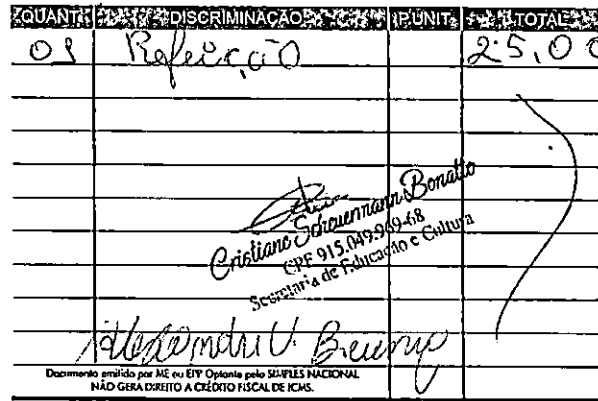 QUANT. DISCRIMINAÇÃO P.UNIT. TOTAL
01 Refeição 25,00
Cristiane Scheuermann Bonatto
CPF 915.049.969-68
Secretaria de Educação e Cultura
Documento emitido por ME ou EPP Optante pelo SIMPLES NACIONAL
NÃO GERA DIREITO A CRÉDITO FISCAL DE ICMS.